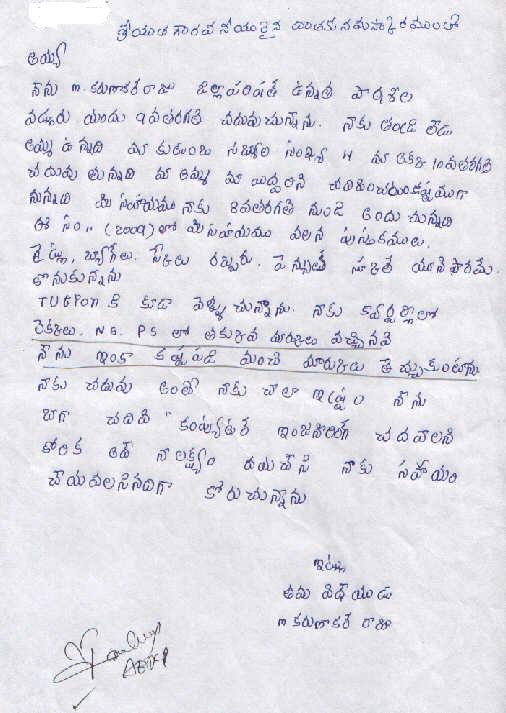 శ్రీయుత గౌరవనీయులైన దాతకు నమస్కారములతో
అయ్యా
నేను m. కరుణాకర రాజు జిల్లా పరిషత్ ఉన్నత పాఠశాల
యందు 9 వతరగతి చదువుచున్నాను. నాకు తండ్రి లేడు
అమ్మ ఉన్నది మా కుటుంబ సభ్యుల సంఖ్య 4 మా అక్క 10 వతరగతి
చదువు తున్నది మా అమ్మ మా ఇద్దరిని చదివించడం కష్టముగా
వున్నది మీ సహాయము నాకు 8 వతరగతి నుండి అందు చున్నది
ఈ సం.. (2009) లో మీ సహాయము వలన పుస్తకములు,
బ్యాగ్ లు, పెన్నులు యూనిఫారమ్
కొనుకున్నాను
కి కూడా వెళ్ళు చున్నాను. నాకు క్వార్టర్లీలో
లెక్కలు, NS. PS లో తక్కువ మార్కులు వచ్చినవి
నేను ఇంకా కష్టపడి మంచి మార్కులు తెచ్చుకుంటాను
నాకు చదువు అంటే నాకు చాలా ఇష్టం నేను
బాగా చదివి "కంప్యూటర్ ఇంజనీరింగ్ చదవాలని
కోరిక అదే నా లక్ష్యం దయచేసి నాకు సహాయం
చేయవలసినదిగా కోరుచున్నాను
ఇట్లు
తమ విధేయుడు
m కరుణాకర రాజు